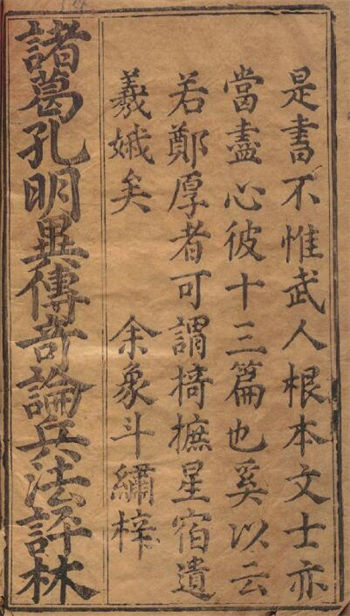 是書不惟武人根本文士亦
當盡心彼十三篇也奚以云
若鄭厚者可謂掎摭星宿遺
羲娥矣 余象斗繡梓
諸葛孔明異傳奇論兵法評林